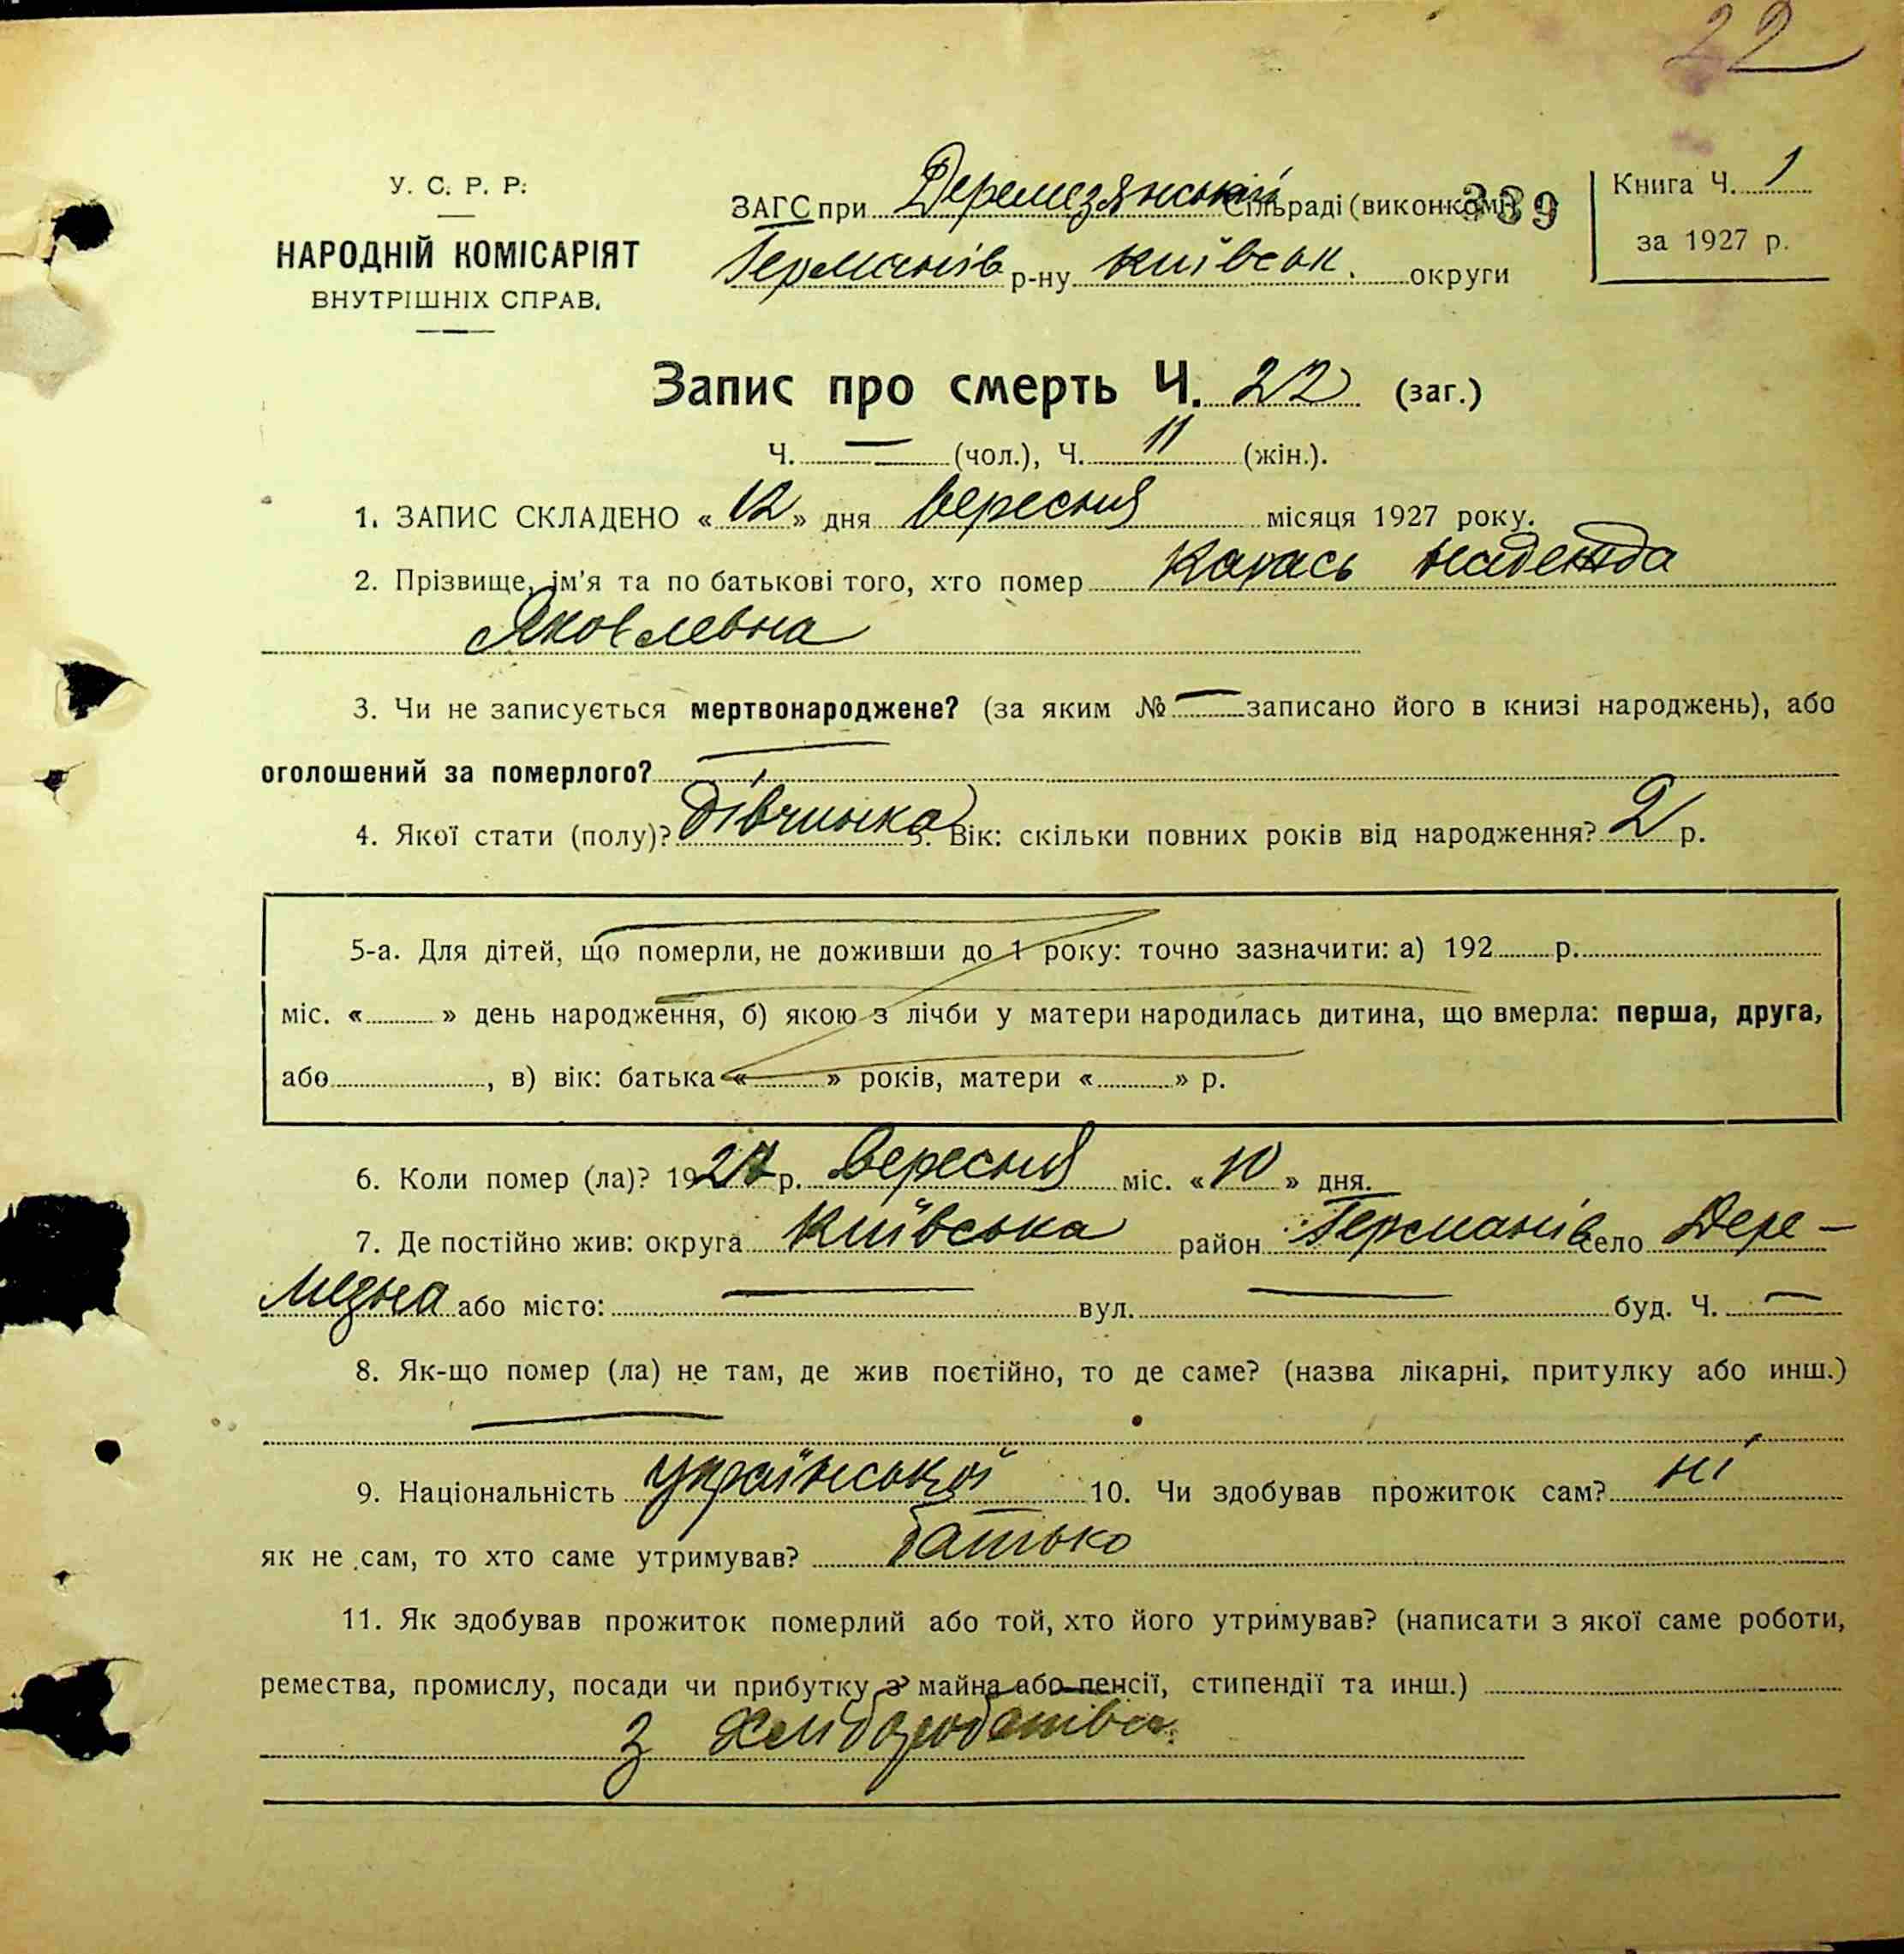 22
У. С. Р. Р.
НАРОДНІЙ КОМІСАРІЯТ
ВНУТРІШНІХ СПРАВ.
ЗАГС при Деремезянській Сільраді (виконкомі) 339
Германів р-ну Київськ. округи
Книга Ч. 1
за 1927 р.
Запис про смерть Ч. 22 (заг.)
Ч. — (чол.), Ч. 11 (жін.).
1. ЗАПИС СКЛАДЕНО « 12 » дня вересня місяця 1927 року.
2. Прізвище, ім'я та по батькові того, хто помер Карась Надежда
Яковлевна
3. Чи не записується мертвонароджене? (за яким № — записано його в книзі народжень), або
оголошений за померлого? —
4. Якої стати (полу)? Дівчинка 5. Вік: скільки повних років від народження? 2 р.
5-а. Для дітей, що померли, не доживши до 1 року: точно зазначити: а) 192 р.
міс. « » день народження, б) якою з лічби у матери народилась дитина, що вмерла: перша, друга,
або , в) вік: батька « » років, матери « » р.
6. Коли помер (ла)? 1927 р. вересня міс. « 10 » дня.
7. Де постійно жив: округа Київська район Германів село Дере-
мезна або місто: — вул. — буд. Ч. —
8. Як-що помер (ла) не там, де жив постійно, то де саме? (назва лікарні, притулку або инш.)
—
9. Національність української 10. Чи здобував прожиток сам? ні
як не сам, то хто саме утримував? батько
11. Як здобував прожиток померлий або той, хто його утримував? (написати з якої саме роботи,
ремества, промислу, посади чи прибутку з майна або пенсії, стипендії та инш.)
з хліборобства.